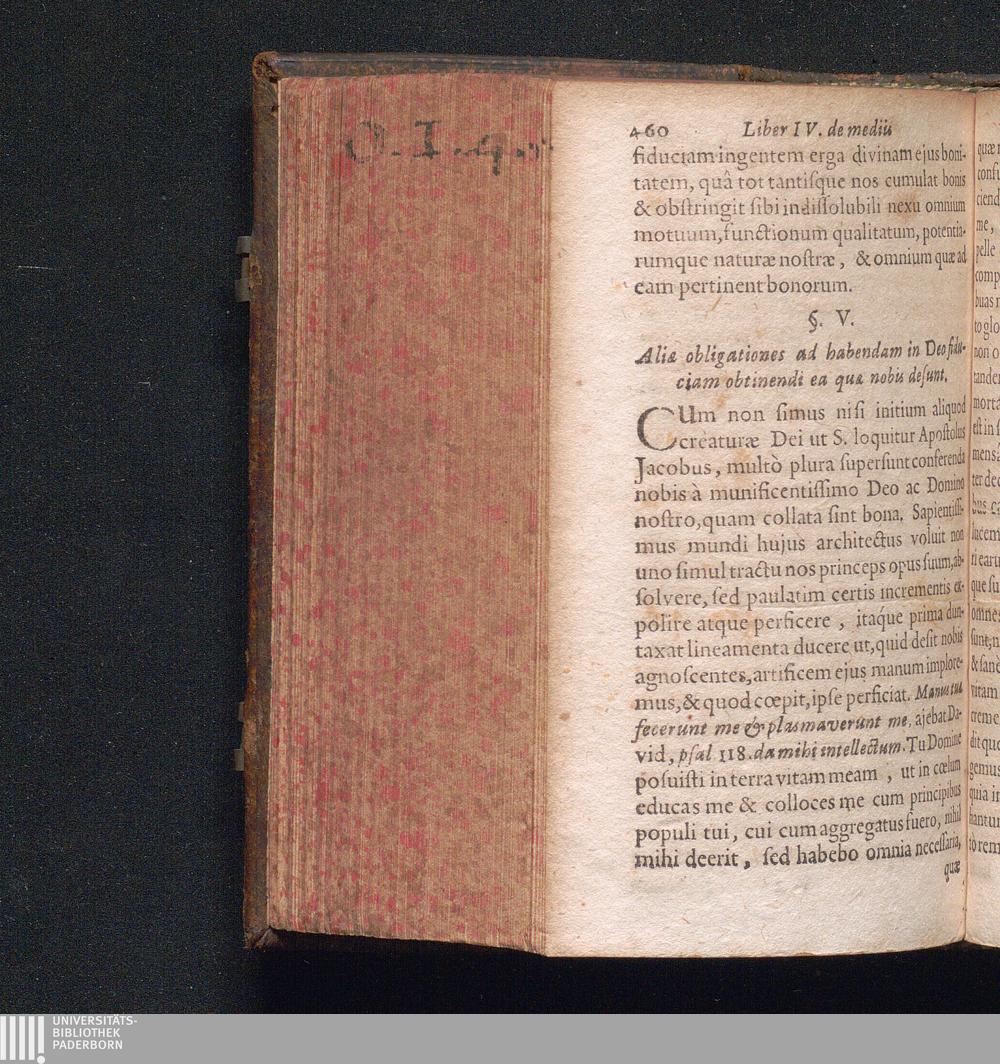 O. I. 4.
460 Liber IV. de mediis
fiduciam ingentem erga divinam ejus boni-
tatem, quâ tot tantiſque nos cumulat bonis
& obſtringit ſibi indiſſolubili nexu omnium
motuum, functionum qualitatum, potentia-
rumque naturæ noſtræ, & omnium quæ ad
eam pertinent bonorum.
§. V.
Aliæ obligationes ad habendam in Deo fidu-
ciam obtinendi ea quæ nobis deſunt.
CUm non ſimus niſi initium aliquod
creaturæ Dei ut S. loquitur Apoſtolus
Jacobus, multò plura ſuperſunt conferenda
nobis à munificentiſſimo Deo ac Domino
noſtro, quam collata ſint bona. Sapientiſſi-
mus mundi hujus architectus voluit non
uno ſimul tractu nos princeps opus ſuum, ab-
ſolvere, ſed paulatim certis incrementis ex-
polire atque perficere, itaque prima dun-
taxat lineamenta ducere ut, quid deſit nobis
agnoſcentes, artificem ejus manum implore-
mus, & quod cœpit, ipſe perficiat. Manus tuæ
fecerunt me & plasmaverunt me, ajebat Da-
vid, pſal 118. da mihi intellectum. Tu Domine
poſuiſti in terra vitam meam, ut in cœlum
educas me & colloces me cum principibus
populi tui, cui cum aggregatus fuero, nihil
mihi deerit, ſed habebo omnia neceſſaria,
quæ
UNIVERSITÄTS-
BIBLIOTHEK
PADERBORN